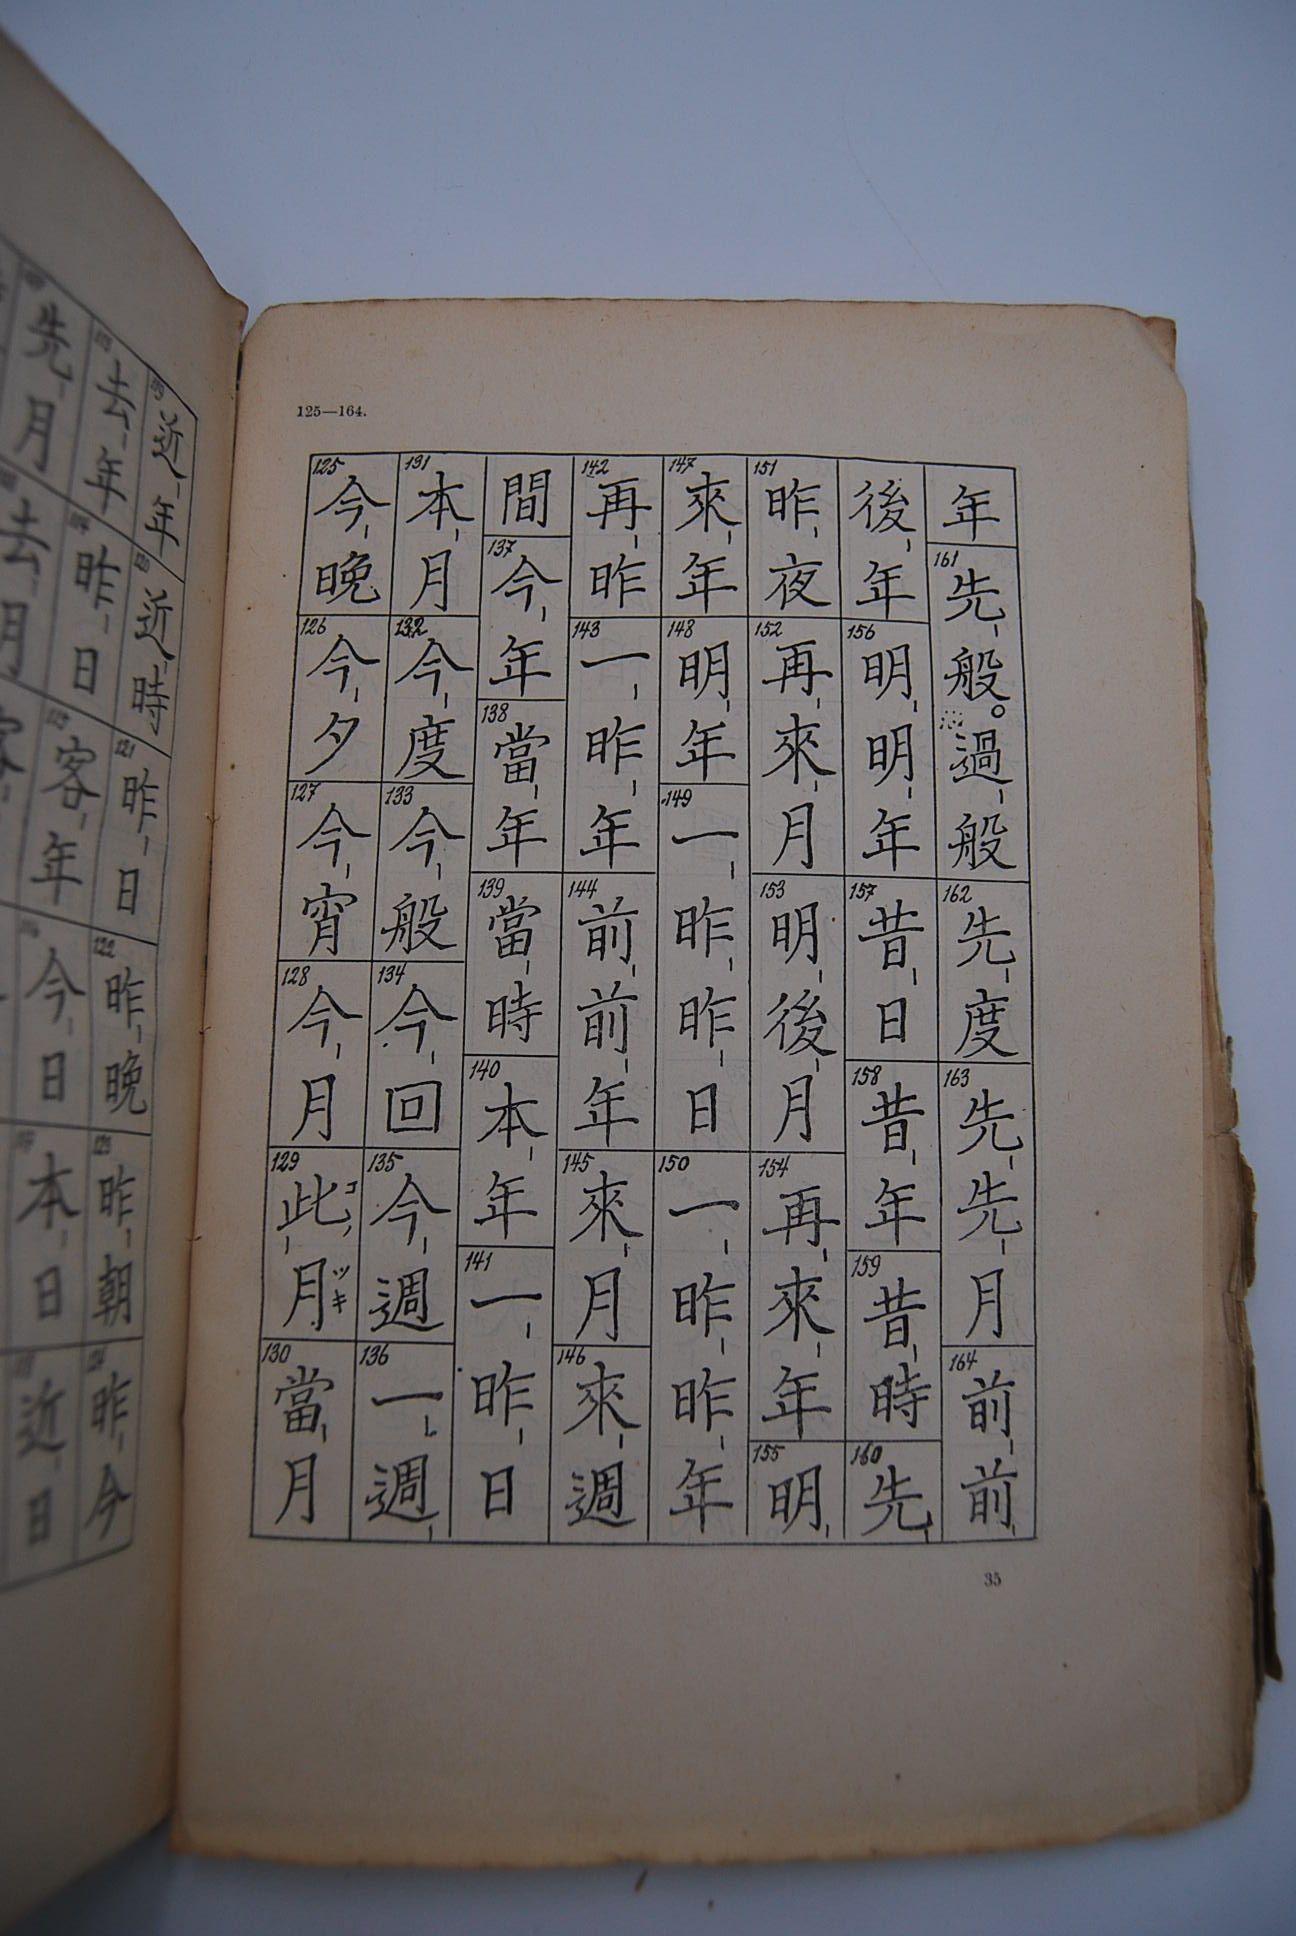 先月
去月
去年
昨日
客年
今日
本日
近日
119 近年 120 近時 121 昨日 122 昨晩 123 昨朝 124 昨今
125—164.
125 今晩 126 今夕 127 今宵 128 今月 129 此月 コノ ツキ 130 當月
131 本月 132 今度 133 今般 134 今回 135 今週 136 一週
間 137 今年 138 當年 139 當時 140 本年 141 一昨日
142 再昨 143 一昨年 144 前前年 145 來月 146 來週
147 來年 148 明年 149 一昨昨日 150 一昨昨年
151 昨夜 152 再來月 153 明後月 154 再來年 155 明
後年 156 明明年 157 昔日 158 昔年 159 昔時 160 先
年 161 先般。過般 162 先度 163 先先月 164 前前
35